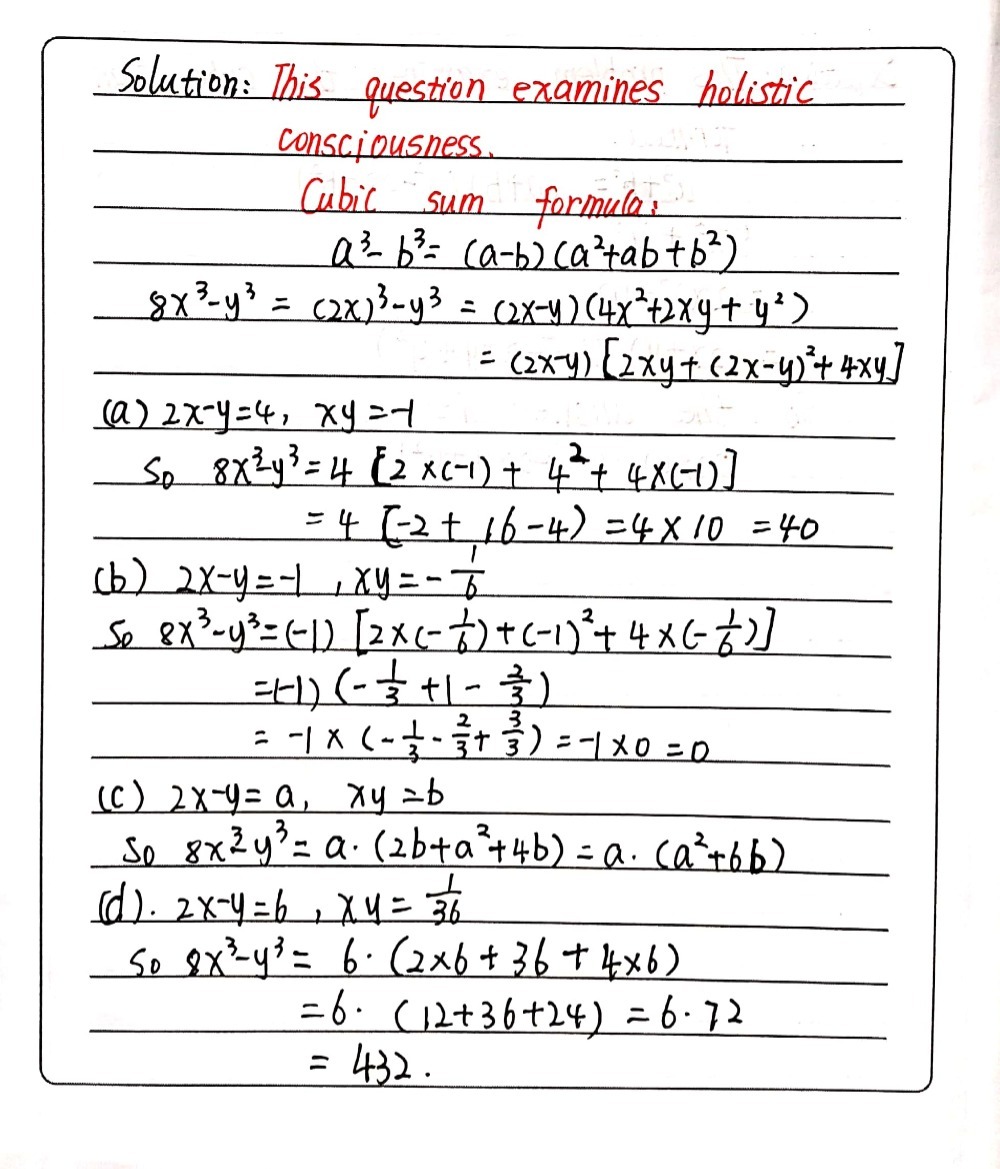 Solution: This question examines holistic
consciousness.
Cubic sum formula:
a³- b³= (a-b)(a²+ab+b²)
8x³-y³ = (2x)³-y³ = (2x-y)(4x²+2xy+y²)
= (2x-y)[2xy+(2x-y)²+4xy]
(a) 2x-y=4, xy=-1
So 8x³-y³=4[2×(-1)+ 4²+ 4×(-1)]
= 4 [-2+ 16-4) =4×10 =40
(b) 2x-y=-1, xy=-1/6
So 8x³-y³=(-1) [2×(-1/6)+(-1)²+ 4×(-1/6)]
=(-1)(-1/3+1-2/3)
= -1×(-1/3-2/3+3/3)=-1×0=0
(c) 2x-y=a, xy=b
So 8x³-y³= a·(2b+a²+4b)=a·(a²+6b)
(d). 2x-y=6, xy=1/36
So 8x³-y³= 6·(2×6+36+4×6)
=6· (12+36+24) =6·72
= 432.